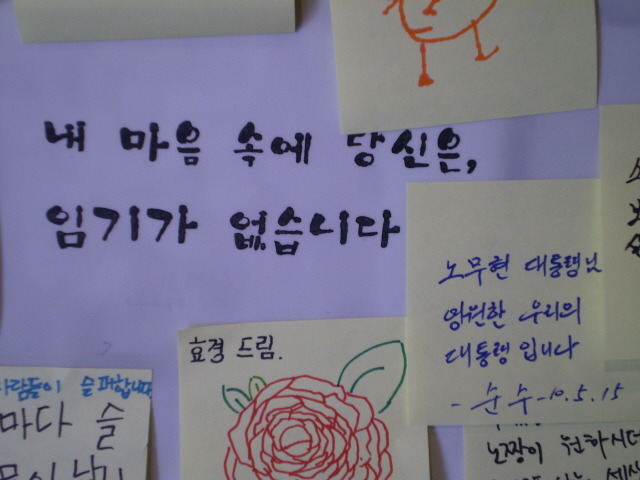 내 마음 속에 당신은,
임기가 없습니다
노무현 대통령님
영원한 우리의
대통령 입니다
- 순수 - 10.5.15
효경 드림.
사람들이 슬퍼합니다
마다 슬
노짱이 원하시던